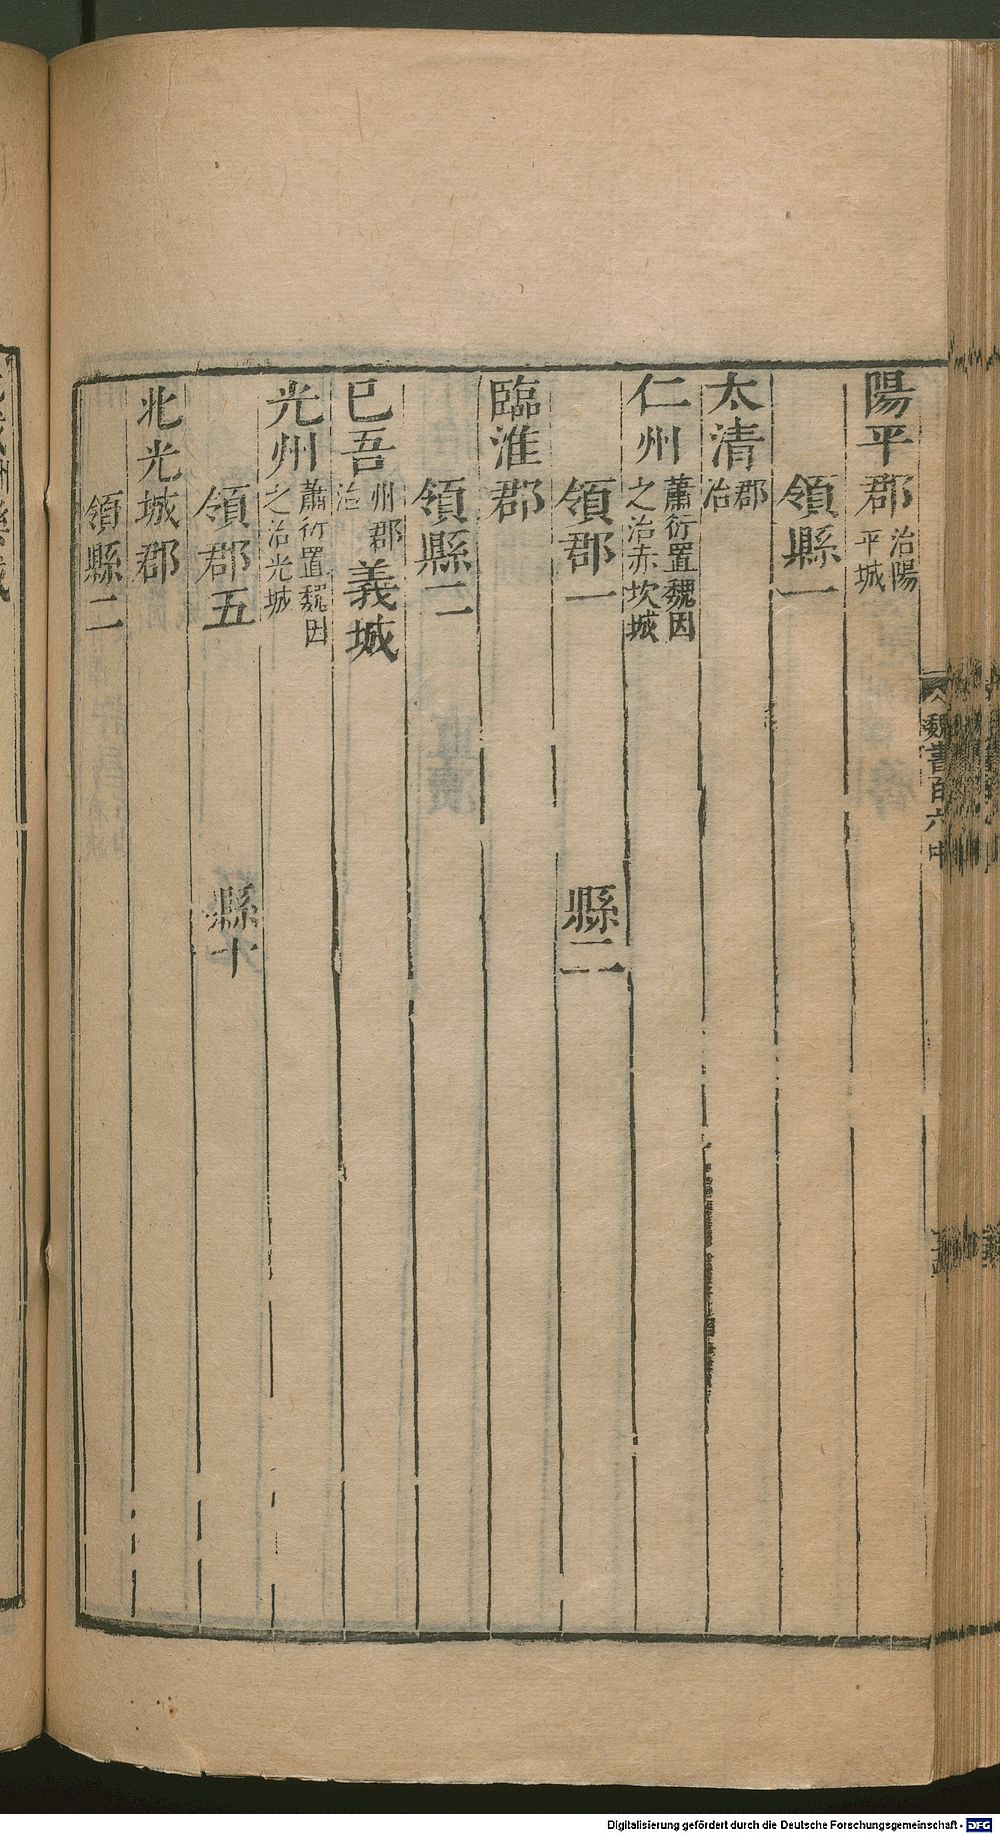 陽平郡治陽平城
領縣一
太清郡治
仁州蕭衍置魏因之治赤坎城
領郡一 縣二
臨淮郡
領縣二
已吾州郡治 義城
光州蕭衍置魏因之治光城
領郡五 縣十
北光城郡
領縣二
魏書百六中
Digitalisierung gefördert durch die Deutsche Forschungsgemeinschaft - DFG